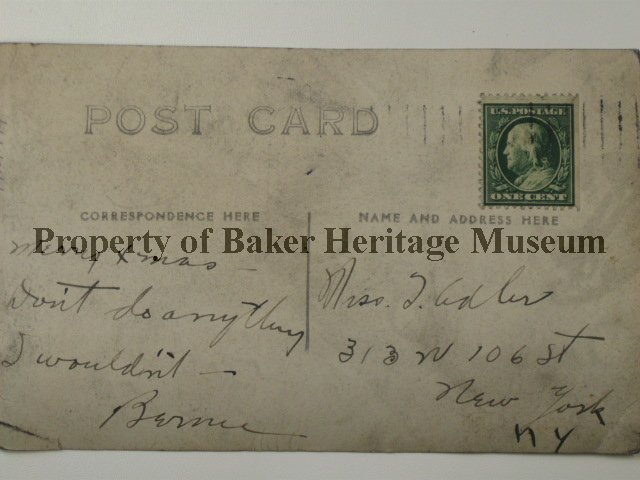 POST CARD
U.S. POSTAGE
ONE CENT
CORRESPONDENCE HERE
NAME AND ADDRESS HERE
Property of Baker Heritage Museum
Merry Xmas –
Don't do anything
I wouldn't –
Bernie
Miss. J. Adler
313 W 106 St
New York
N Y